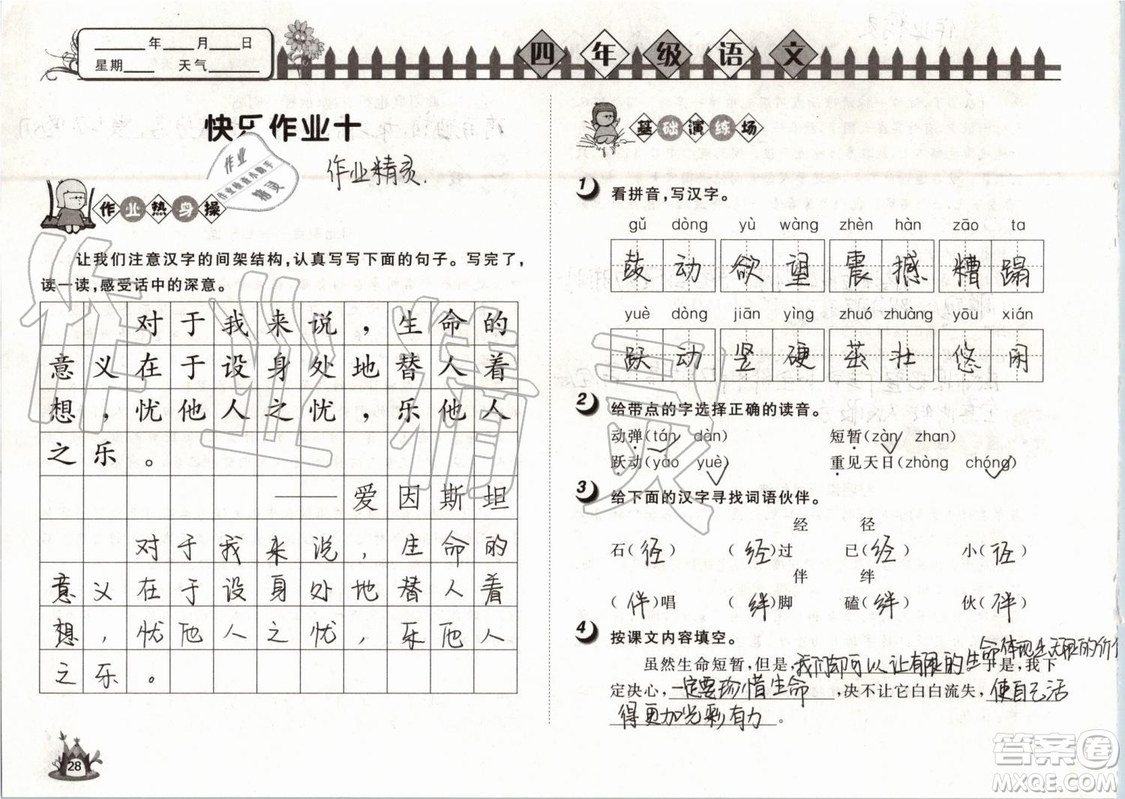 ____年____月____日
星期____ 天气____
四年级语文
快乐作业十
作业精灵
作业热身操
让我们注意汉字的间架结构,认真写写下面的句子。写完了,
读一读,感受话中的深意。
对于我来说,生命的
意义在于设身处地替人着
想,忧他人之忧,乐他人
之乐。
——爱因斯坦
对于我来说,生命的
意义在于设身处地替人着
想,忧他人之忧,乐他人
之乐。
28
基础演练场
1 看拼音,写汉字。
gǔ dòng yù wàng zhèn hàn zāo ta
鼓动 欲望 震撼 糟蹋
yuè dòng jiān yìng zhuó zhuàng yōu xián
跃动 坚硬 茁壮 悠闲
2 给带点的字选择正确的读音。
动弹(tán dàn) 短暂(zàn zhan)
跃动(yào yuè) 重见天日(zhòng chóng)
3 给下面的汉字寻找词语伙伴。
经 径
石(径) (经)过 已(经) 小(径)
伴 绊
(伴)唱 (绊)脚 磕(绊) 伙(伴)
4 按课文内容填空。
虽然生命短暂,但是,我们却可以让有限的生命体现出无限的价值于是,我下
定决心,一定要珍惜生命,决不让它白白流失,使自己活
得更加光彩有力。
作业精灵
答案圈
MXQE.COM